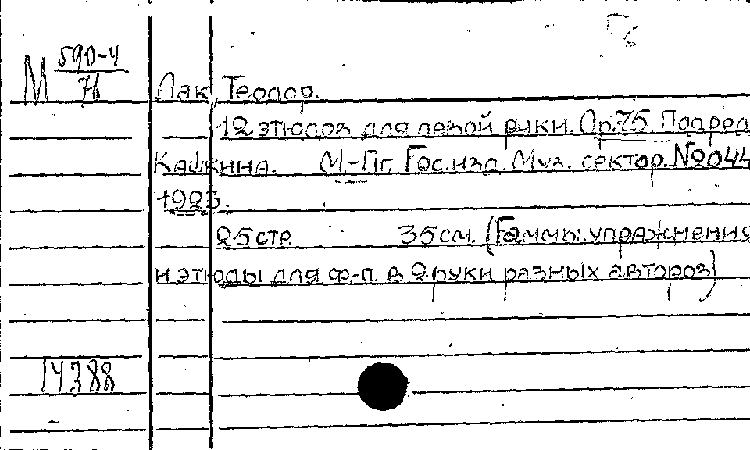 М 590-4
71
Лак, Теодор.
12 этюдов для левой руки. Ор.75. Под ред
Кашкина. М.-Пг. Гос. изд. Муз. сектор. №044
25 стр. 35 см. (Гаммы, упражнения
и этюды для ф-п. в 2 руки разных авторов)
14388